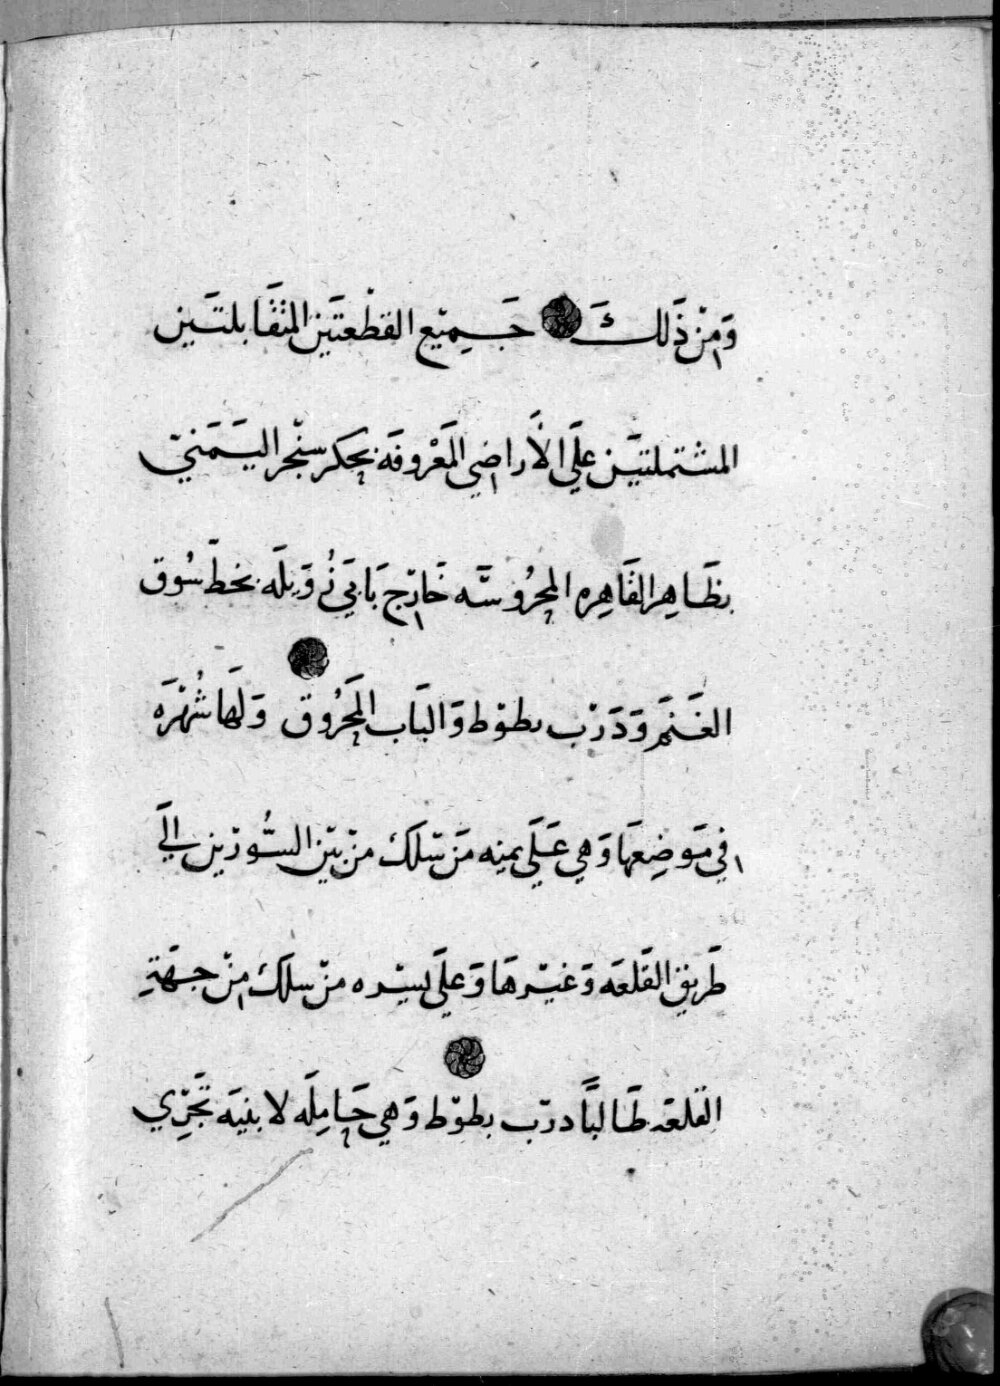 وَمِنْ ذَلِكَ جَمِيْع القطْعتَين المتقَابلتَين
المشتملتيَن علَى الأَراضِي المعْروفَه بحكر سنْجر اليَمَنيّ
بظَاهِر القَاهِره المحرُوسَّه خَارْج بَابَي زُوَيلَه بخطّ سُوق
الغَنَم وَدَرْب بطوْط وَالبَاب المحَرُوق وَلهَا شُهْرَه
في مَوضِعهَا وَهي عَلَى يمنه مَنْ سَلَكَ منْ بَيْن السُّورَيْن الَي
طَريق القَلعَه وَغيْرهَا وَعلَى يسَره منْ سلكَ منْ جهَةِ
القلعَه طَالبًا درْب بطوْط وَهي حَامِلَه لابنيَه تَجْرِي